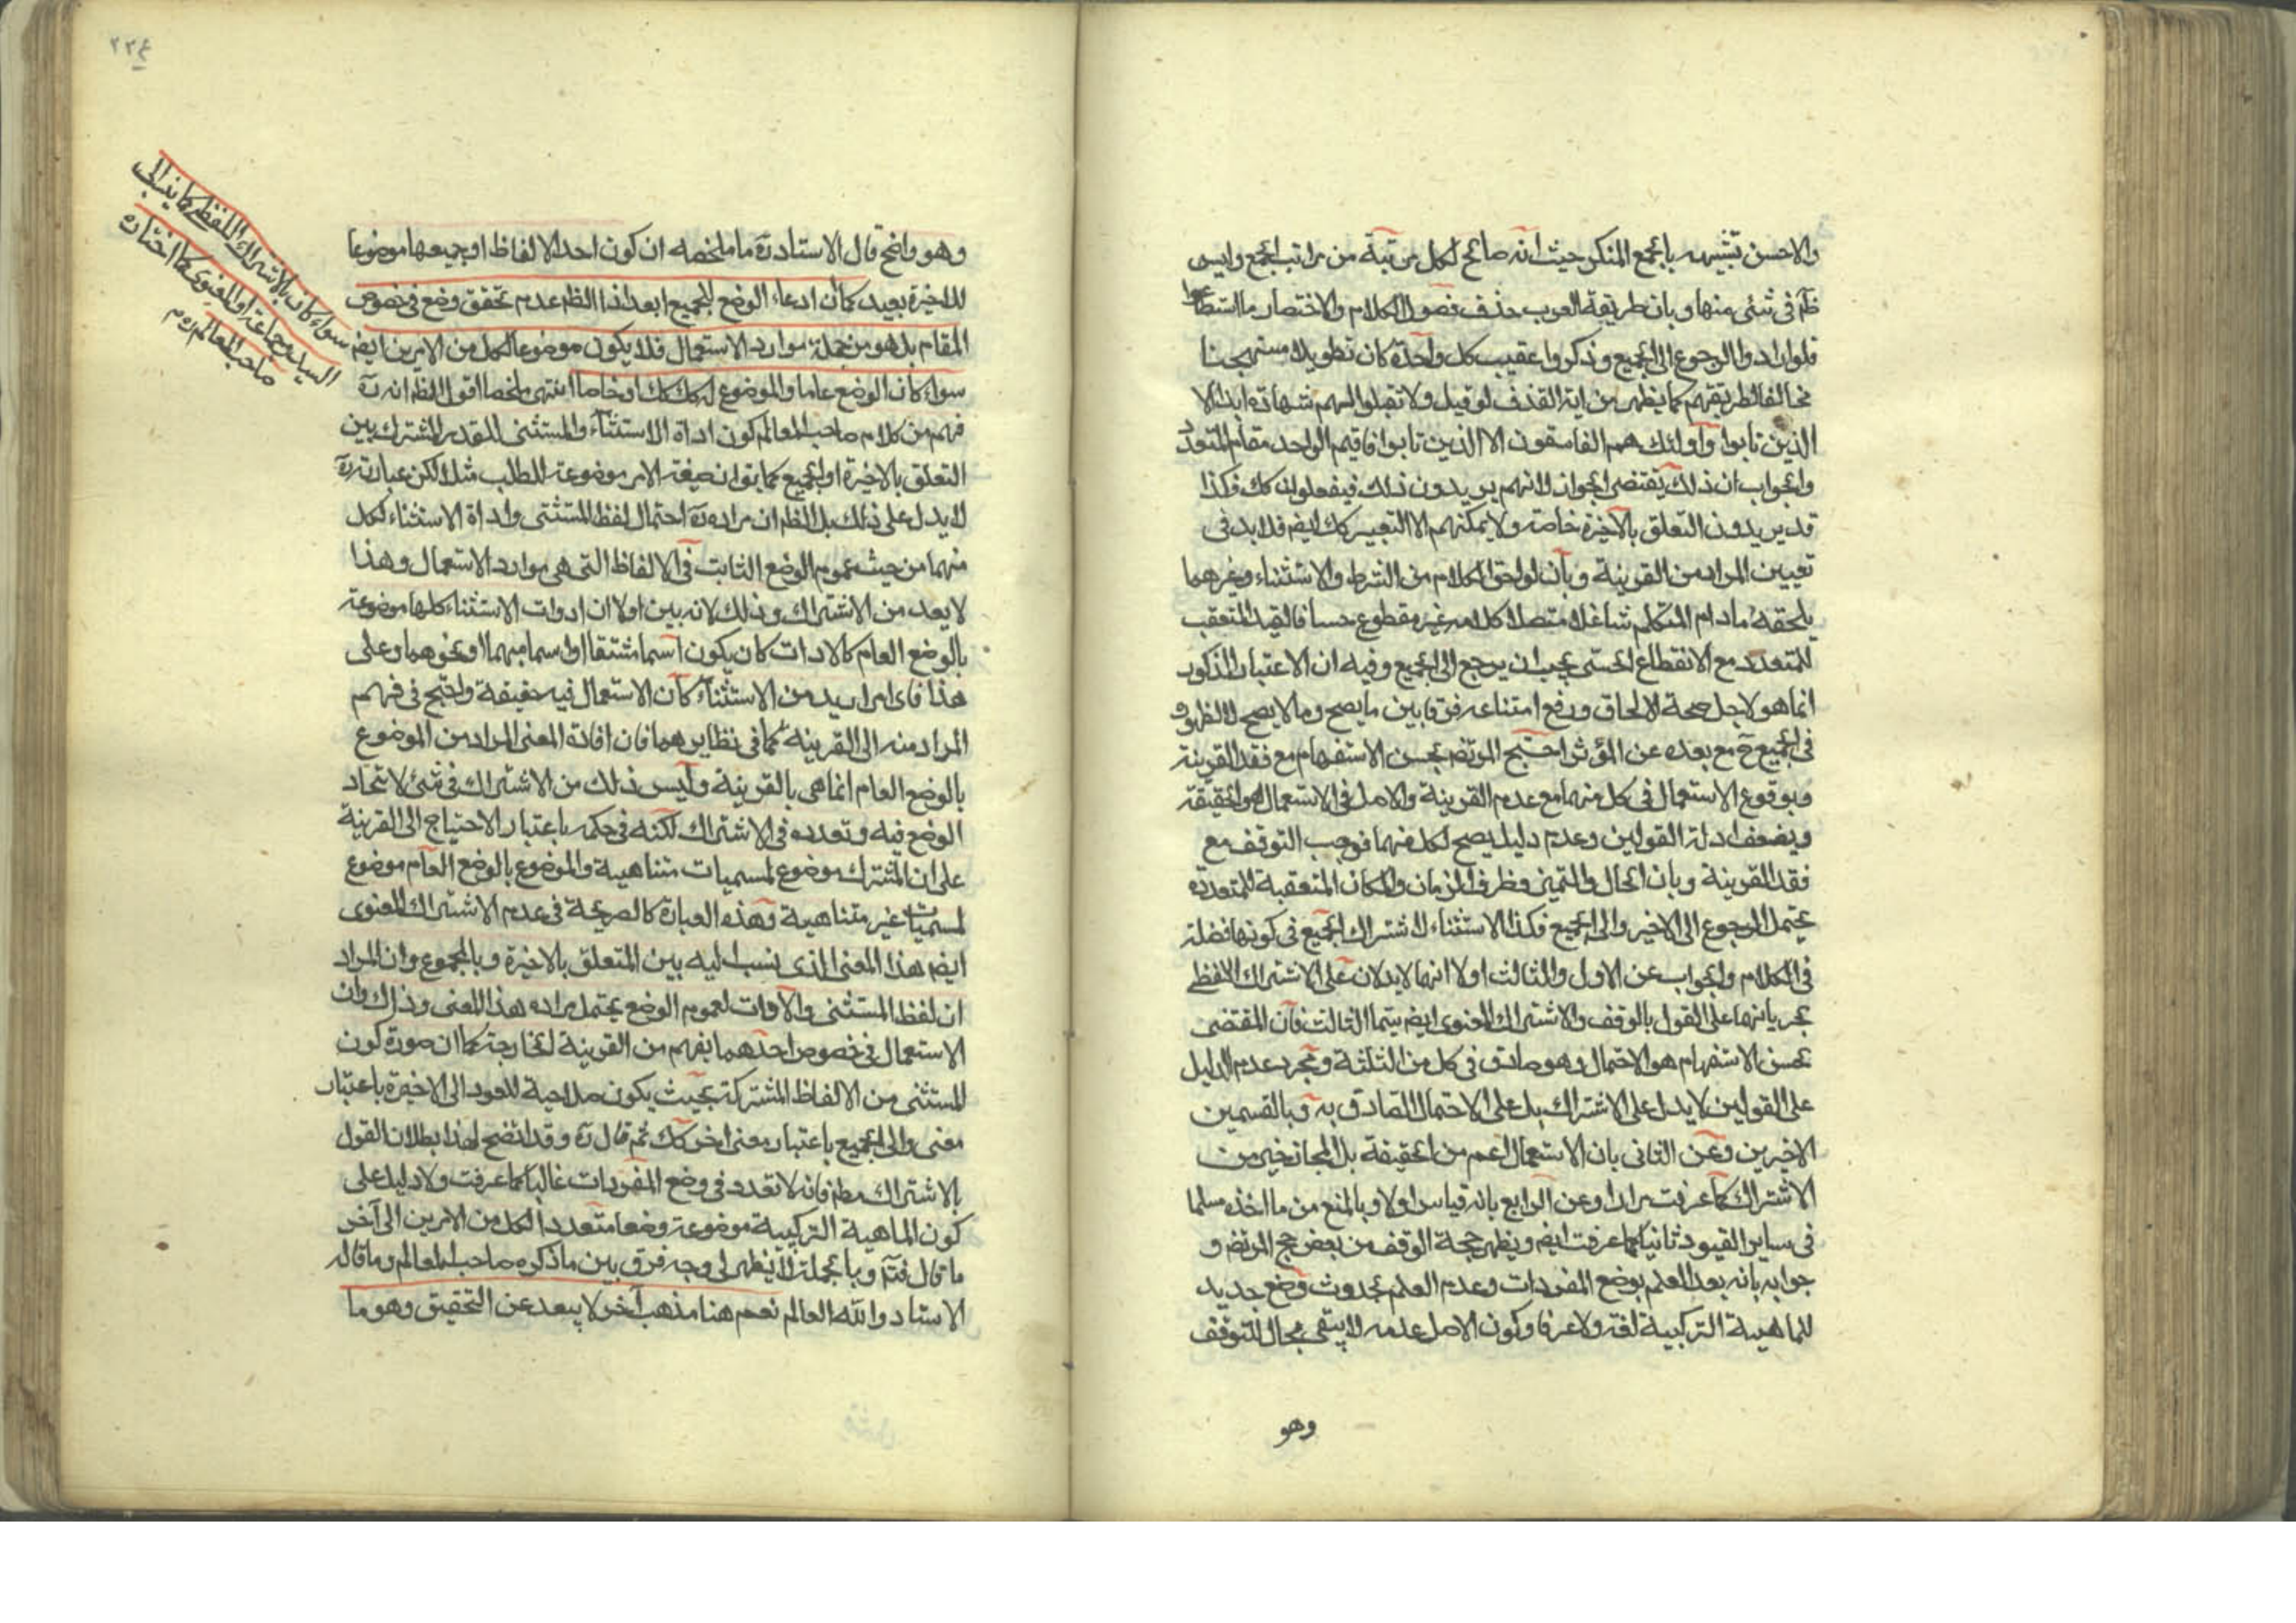 والاحسن تشبيهه بالجمع المنكر حيث انه صالح لكل مرتبة من مراتب الجمع وليس
ظم فى شئ منها وبان طريقة العرب حذف فضول الكلام والاختصار ما استطاعوا
فلو ارادوا الرجوع الى الجميع وذكروا عقيب كل واحدة كان تطويلا مستهجنا
مخالفا لطريقتهم كما يظهر من اية القذف لو قيل ولا تقبلوا لهم شهادة ابدا الا
الذين تابوا واولئك هم الفاسقون الا الذين تابوا فاقيم الواحد مقام المتعدد
والجواب ان ذلك يقتضى الجواز لانهم يريدون ذلك فيفعلون كك فكذا
قد يريدون التعلق بالاخيرة خاصة ولا يمكنهم الا التعبير كك ايضم فلا بد فى
تعيين المراد من القرينة وبان لواحق الكلام من الشرط والاستثناء وغيرهما
يلحقه ما دام المتكلم شاغلا متصلا كلامه غير مقطوع حسا فالقيد المتعقب
للمتعدد مع الانقطاع الحسى يجب ان يرجع الى الجميع وفيه ان الاعتبار المذكور
انما هو لاجل صحة الالحاق ورفع امتناعه فرقا بين ما يصح وما لا يصح لا لظهوره
فى الجميع ح مع بعده عن المؤثر احتج المرتضم بحسن الاستفهام مع فقد القرينة
وبوقوع الاستعمال فى كل منهما مع عدم القرينة والاصل فى الاستعمال هو الحقيقة
وبضعف ادلة القولين وعدم دليل يصح لكل منهما فوجب التوقف مع
فقد القرينة وبان الحال والتميز وظرف الزمان والمكان المتعقبة للمتعددة
يحتمل الرجوع الى الاخير والى الجميع فكذا الاستثناء لاشتراك الجميع فى كونها فضلة
فى الكلام والجواب عن الاول والثالث اولا انها لا يدلان على الاشتراك اللفظى
بجريانها على القول بالوقف والاشتراك المعنوى ايضم سيما الثالث فان المقتضى
بحسن الاستفهام هو الاحتمال وهو صادق فى كل من الثلثة ومجرد عدم الدليل
على القولين لا يدل على الاشتراك بل على الاحتمال الصادق به وبالقسمين
الاخيرين وعن الثانى بان الاستعمال اعم من الحقيقة بل المجاز خير من
الاشتراك كما عرفت مرارا وعن الرابع بانه قياس اولا وبالمنع من ما اخذه مسلما
فى ساير القيود ثانيا كما عرفت ايضم ويظهر حجة الوقف من بعض حجج المرتضم و
جوابه بانه بعد العلم بوضع المفردات وعدم العلم بحدوث وضع جديد
للماهية التركيبية لغة ولا عرفا وكون الاصل عدمه لا يبقى مجال للتوقف
وهو
٢٢٤
وهو واضح قال الاستاد ره ما ملخصه ان كون احد الالفاظ او جميعها موضوعا
للاخيرة بعيد كما ان ادعاء الوضع للجميع ابعد اذ الظم عدم تحقق وضع فى خصوص
المقام بل هو من جملة موارد الاستعمال فلا يكون موضوعا لكل من الامرين ايضم
سواء كان الوضع عاما والموضوع له كك او خاصا انتهى ملخصا اقول الظم انه ره
فهم من كلام صاحب المعالم كون اداة الاستثناء والمستثنى للقدر المشترك بين
التعلق بالاخيرة او الجميع كما يقم ان صيغة الامر موضوعة للطلب مثلا لكن عبارته ره
لا يدل على ذلك بل الظم ان مراده ره احتمال لفظ المستثنى واداة الاستثناء لكل
منهما من حيث عموم الوضع الثابت فى الالفاظ التى هى موارد الاستعمال وهذا
لا يعد من الاشتراك وذلك لانه بين اولا ان ادوات الاستثناء كلها موضوعة
بالوضع العام كالادات كان يكون اسما مشتقا او اسما مبهما او نحوهما وعلى
هذا فاى امر اريد من الاستثناء كان الاستعمال فيه حقيقة واحتج فى فهم
المراد منه الى القرينة كما فى نظايرهما فان افادة المعنى المراد من الموضوع
بالوضع العام انما هى بالقرينة وليس ذلك من الاشتراك فى شئ لاتحاد
الوضع فيه وتعدده فى الاشتراك لكنه فى حكمه باعتبار الاحتياج الى القرينة
على ان المشترك موضوع لمسميات متناهية والموضوع بالوضع العام موضوع
لمسميات غير متناهية وهذه العبارة كالصريحة فى عدم الاشتراك المعنوى
ايضم هذا المعنى الذى نسب اليه بين المتعلق بالاخيرة وبالمجموع وان المراد
ان لفظ المستثنى والادوات لعموم الوضع يحتمل مراده هذا المعنى وذلك وان
الاستعمال فى خصوص احدهما يفهم من القرينة الخارجة كما ان صورة كون
المستثنى من الالفاظ المشتركة بحيث يكون صلاحية للعود الى الاخيرة باعتبار
معنى والى الجميع باعتبار معنى اخر كك ثم قال ره وقد اتضح لهذا بطلان القول
بالاشتراك مطم فانه لا تعدد فى وضع المفردات غالبا كما عرفت ولا دليل على
كون الماهية التركيبية موضوعة وضعا متعددا لكل من الامرين الى آخر
ما قال فتم وبالجملة لا يظهر لى وجه فرق بين ما ذكره صاحب المعالم وما قاله
الاستاد والله العالم نعم هنا مذهب آخر لا يبعد عن التحقيق وهو ما
سواء كان بالاشتراك اللفظى كما ينسب الى
السيد وجماعة او المعنوى كما اختاره
صاحب المعالم ره م